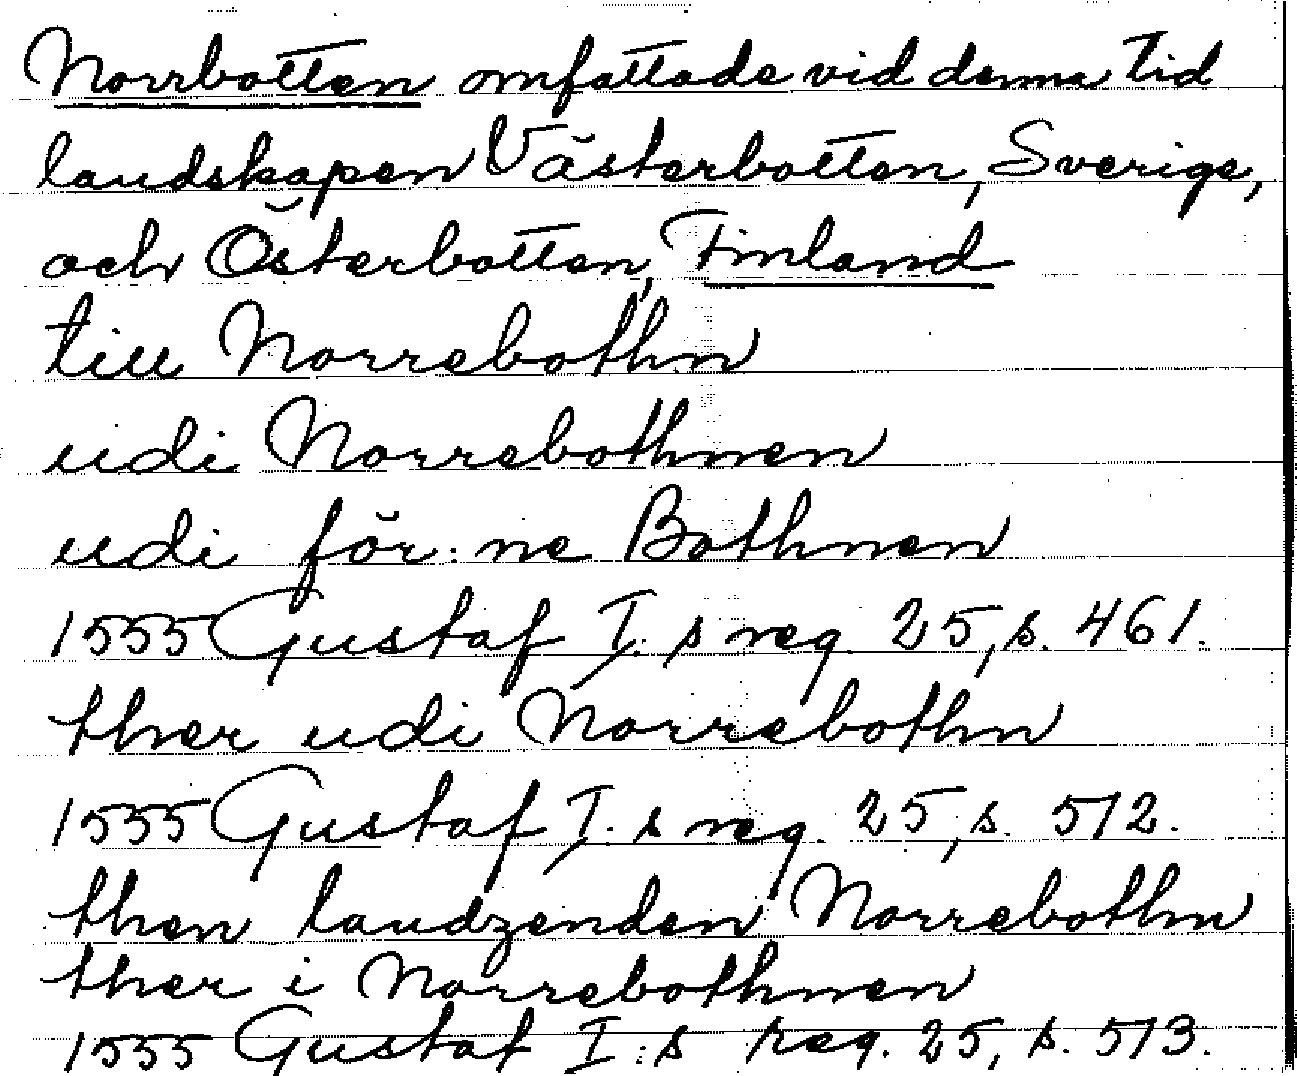 Norrbotten omfattade vid denna tid
landskapen Västerbotten, Sverige,
och Österbotten, Finland
till Norrebothn
udi Norrebothnen
udi för:ne Bothnen
1555 Gustaf I:s reg. 25, s. 461.
ther udi Norrebothn
1555 Gustaf I:s reg. 25, s. 512.
then landzenden Norrebothn
ther i Norrebothnen
1555 Gustaf I:s reg. 25, s. 513.